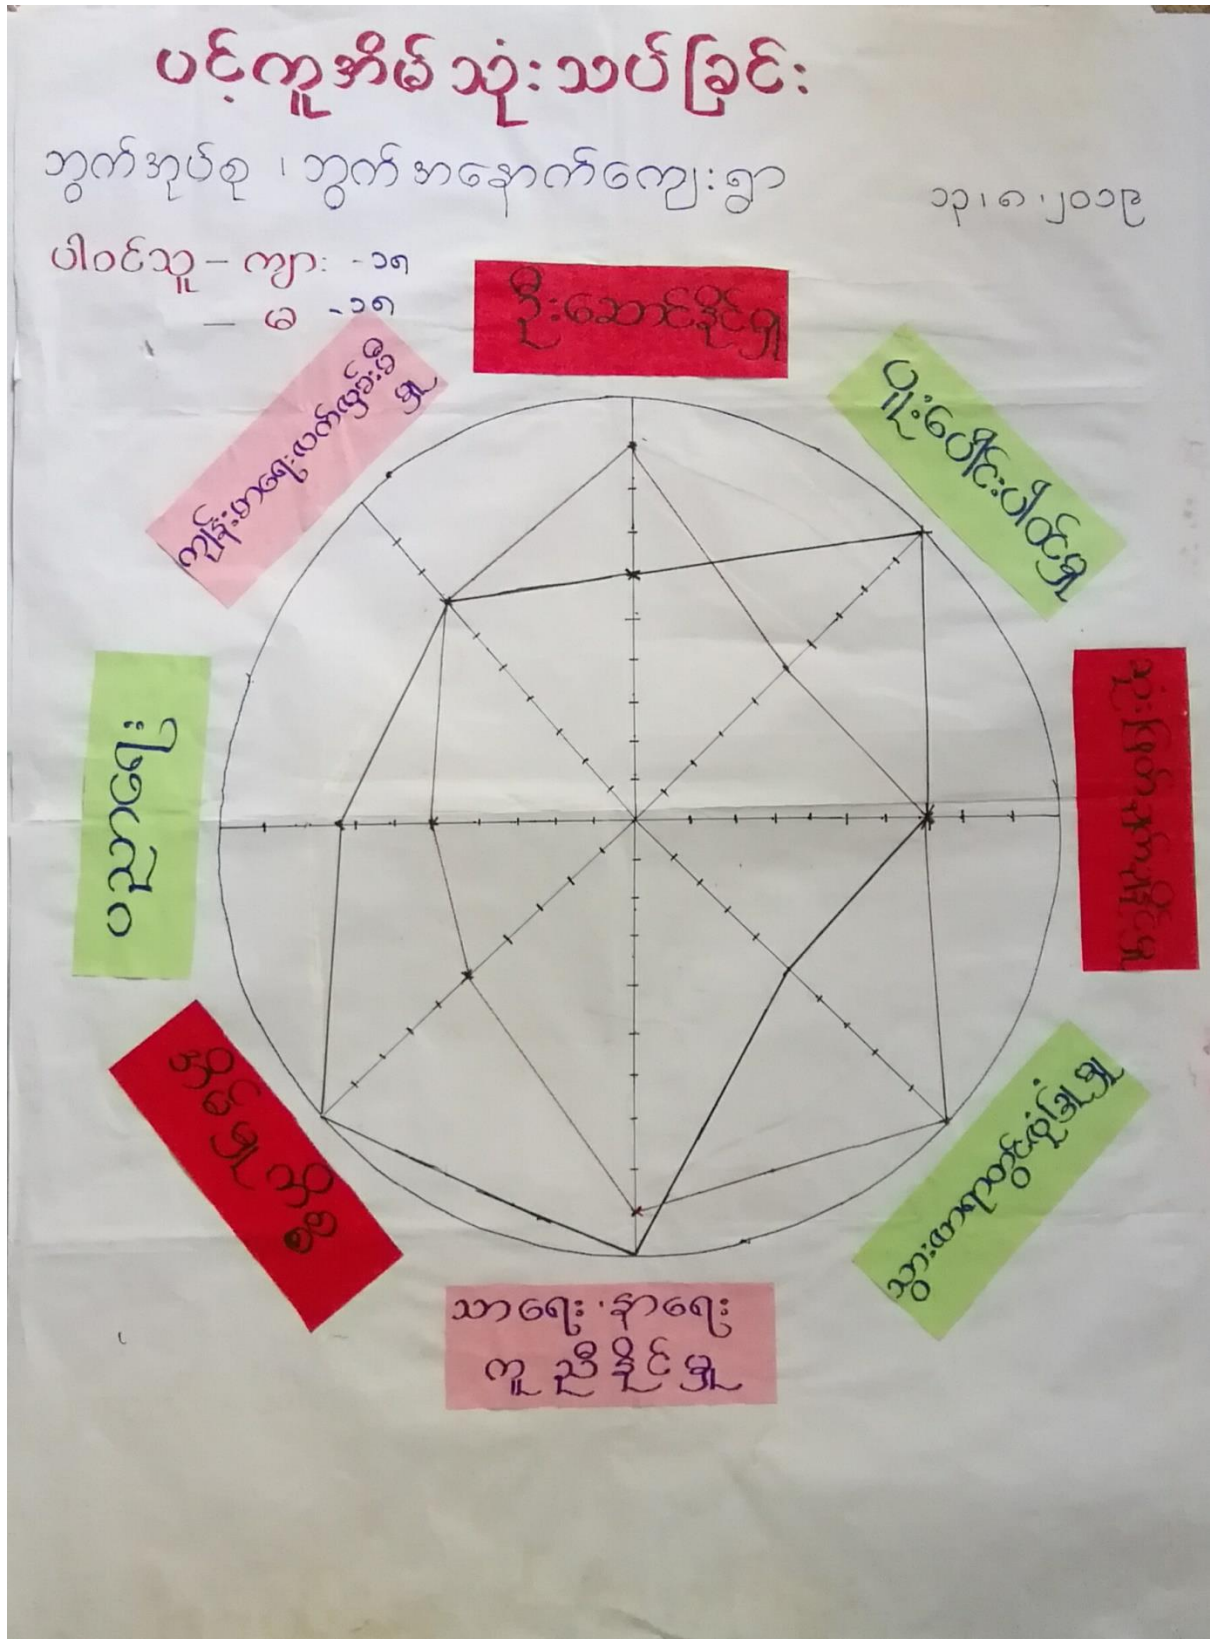 ပင့်ကူအိမ်သုံးသပ်ခြင်း
ဘွက်အုပ်စု ၊ ဘွက်အနောက်ကျေးရွာ
၁၃၊၈၊၂၀၁၉
ပါဝင်သူ – ကျား -၁၈
– မ -၁၈
ဦးဆောင်နိုင်မှု
ပူးပေါင်းပါဝင်မှု
ဆုံးဖြတ်ချက်ချနိုင်မှု
သာရေး ၊ နာရေး
ကူညီနိုင်မှု
ပိုင်ဆိုင်မှု
ပညာရေး
ကျန်းမာရေးလက်လှမ်းမီ
မှု